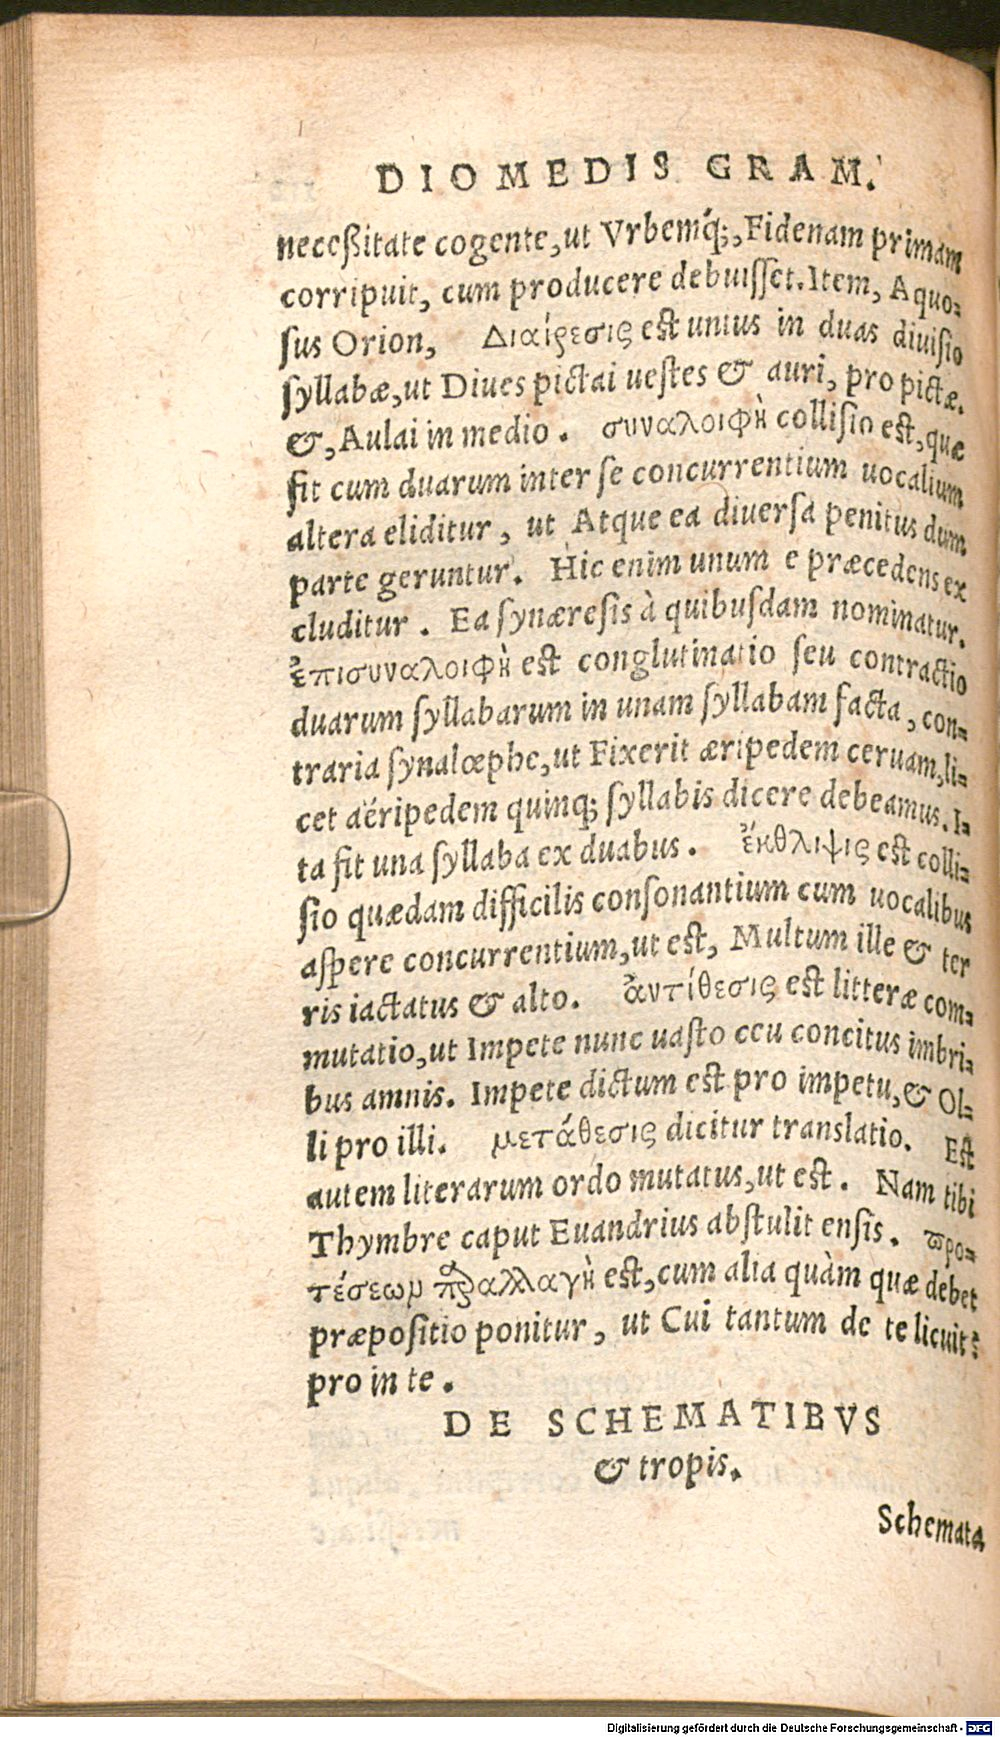 DIOMEDIS GRAM.
neceßitate cogente, ut Vrbemq́;, Fidenam primam
corripuit, cum producere debuisset. Item, Aquo-
sus Orion, Διαίρεσις est unius in duas diuisio
syllabæ, ut Diues pictai uestes & auri, pro pictæ.
&, Aulai in medio. συναλοιφὴ collisio est, quæ
fit cum duarum inter se concurrentium uocalium
altera eliditur, ut Atque ea diuersa penitus dum
parte geruntur. Hic enim unum e præcedens ex
cluditur. Ea synæresis à quibusdam nominatur.
ἐπισυναλοιφὴ est conglutinatio seu contractio
duarum syllabarum in unam syllabam facta, con-
traria synalœphe, ut Fixerit æripedem ceruam, li-
cet aéripedem quinq; syllabis dicere debeamus. I-
ta fit una syllaba ex duabus. ἔκθλιψις est colli-
sio quædam difficilis consonantium cum uocalibus
aspere concurrentium, ut est, Multum ille & ter
ris iactatus & alto. ἀντίθεσις est litteræ com-
mutatio, ut Impete nunc uasto ceu concitus imbri-
bus amnis. Impete dictum est pro impetu, & Ol-
li pro illi. μετάθεσις dicitur translatio. Est
autem literarum ordo mutatus, ut est. Nam tibi
Thymbre caput Euandrius abstulit ensis. ϖρο-
τέσεωμ παραλλαγὴ est, cum alia quàm quæ debet
præpositio ponitur, ut Cui tantum de te licuit?
pro in te.
DE SCHEMATIBVS
& tropis.
Schemata
Digitalisierung gefördert durch die Deutsche Forschungsgemeinschaft - DFG